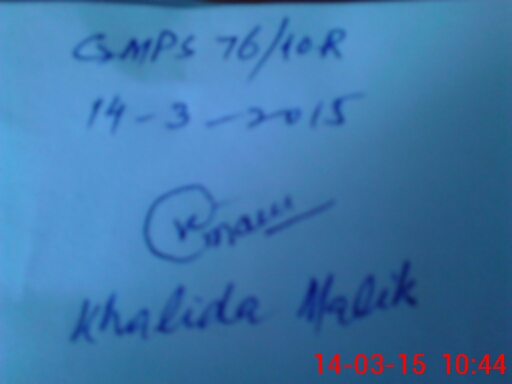 GMPS 76/10R
14-3-2015
Khalida Malik
14-03-15 10:44